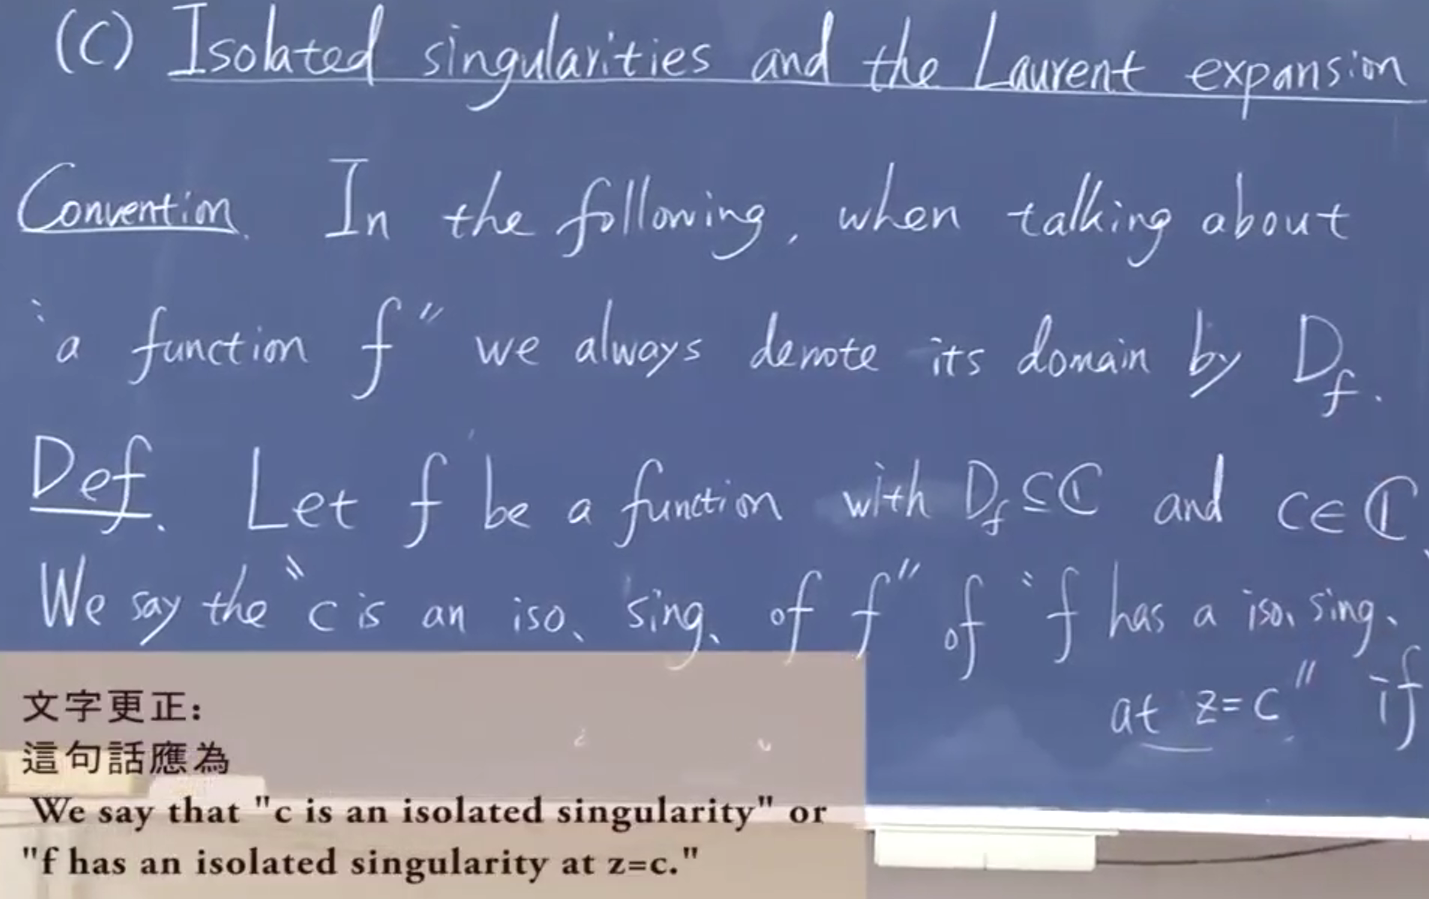 (C) Isolated singularities and the Laurent expansion
Convention. In the following, when talking about
"a function f" we always denote its domain by D_f.
Def. Let f be a function with D_f ⊆ ℂ and c ∈ ℂ.
We say the "c is an iso. sing. of f" of "f has a iso. sing.
at z=c" if
文字更正:
這句話應為
We say that "c is an isolated singularity" or
"f has an isolated singularity at z=c."